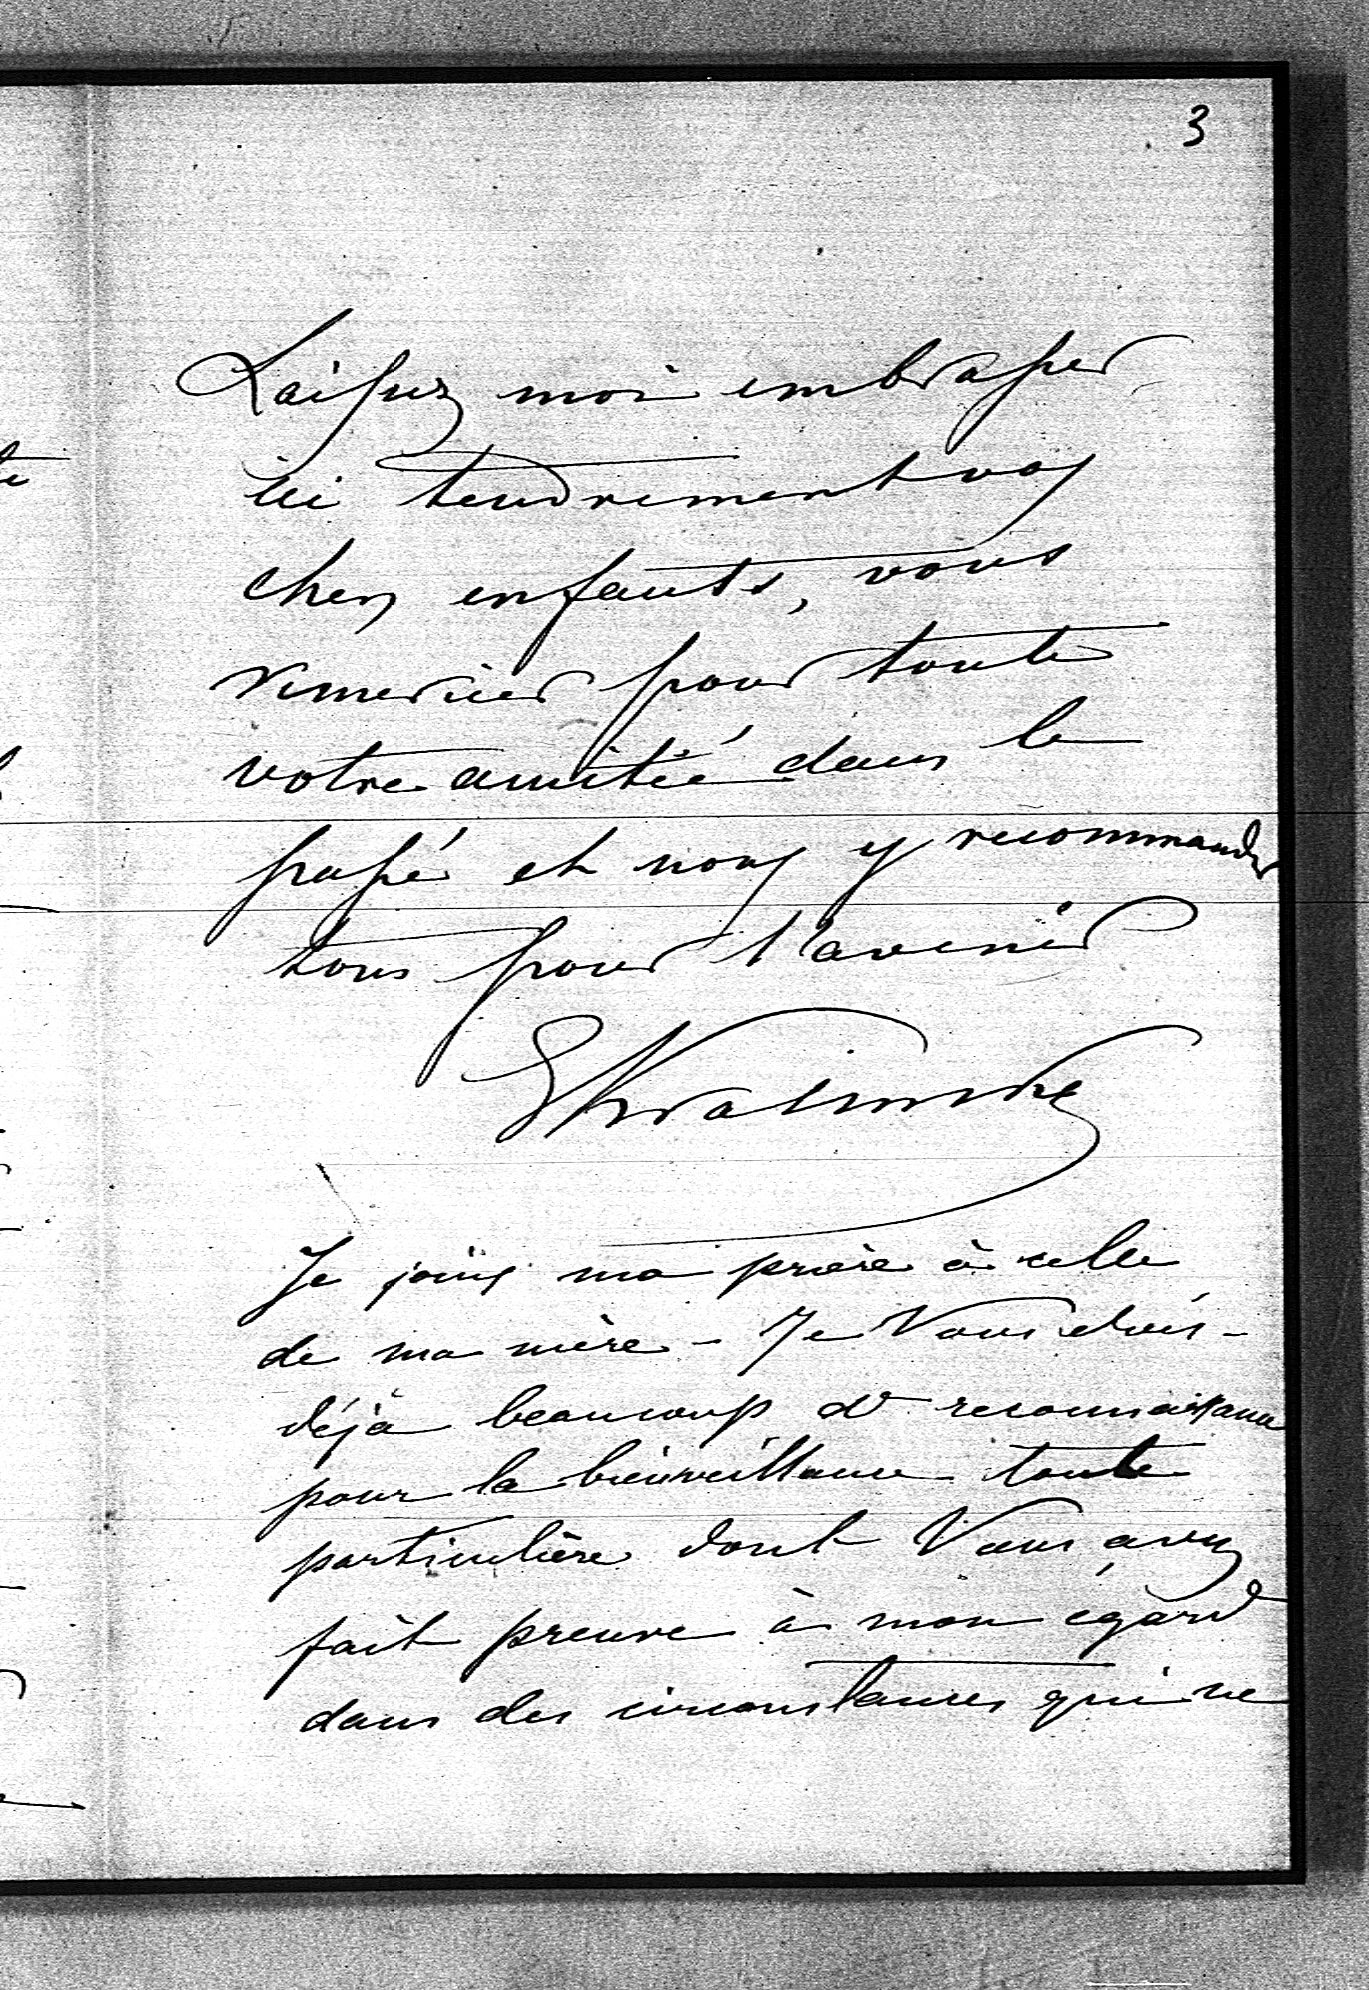 3
Laissez moi embrasser
ici tendrement vos
chers enfants, vous
remercier pour toute
votre amitié dans le
passé et nous y recommander
tous pour l'avenir
Je joins ma prière à celle
de ma mère – Je Vous dois
déjà beaucoup de reconnaissance
pour la bienveillance toute
particulière dont Vous avez
fait preuve à mon égard
dans des circonstances qui ne